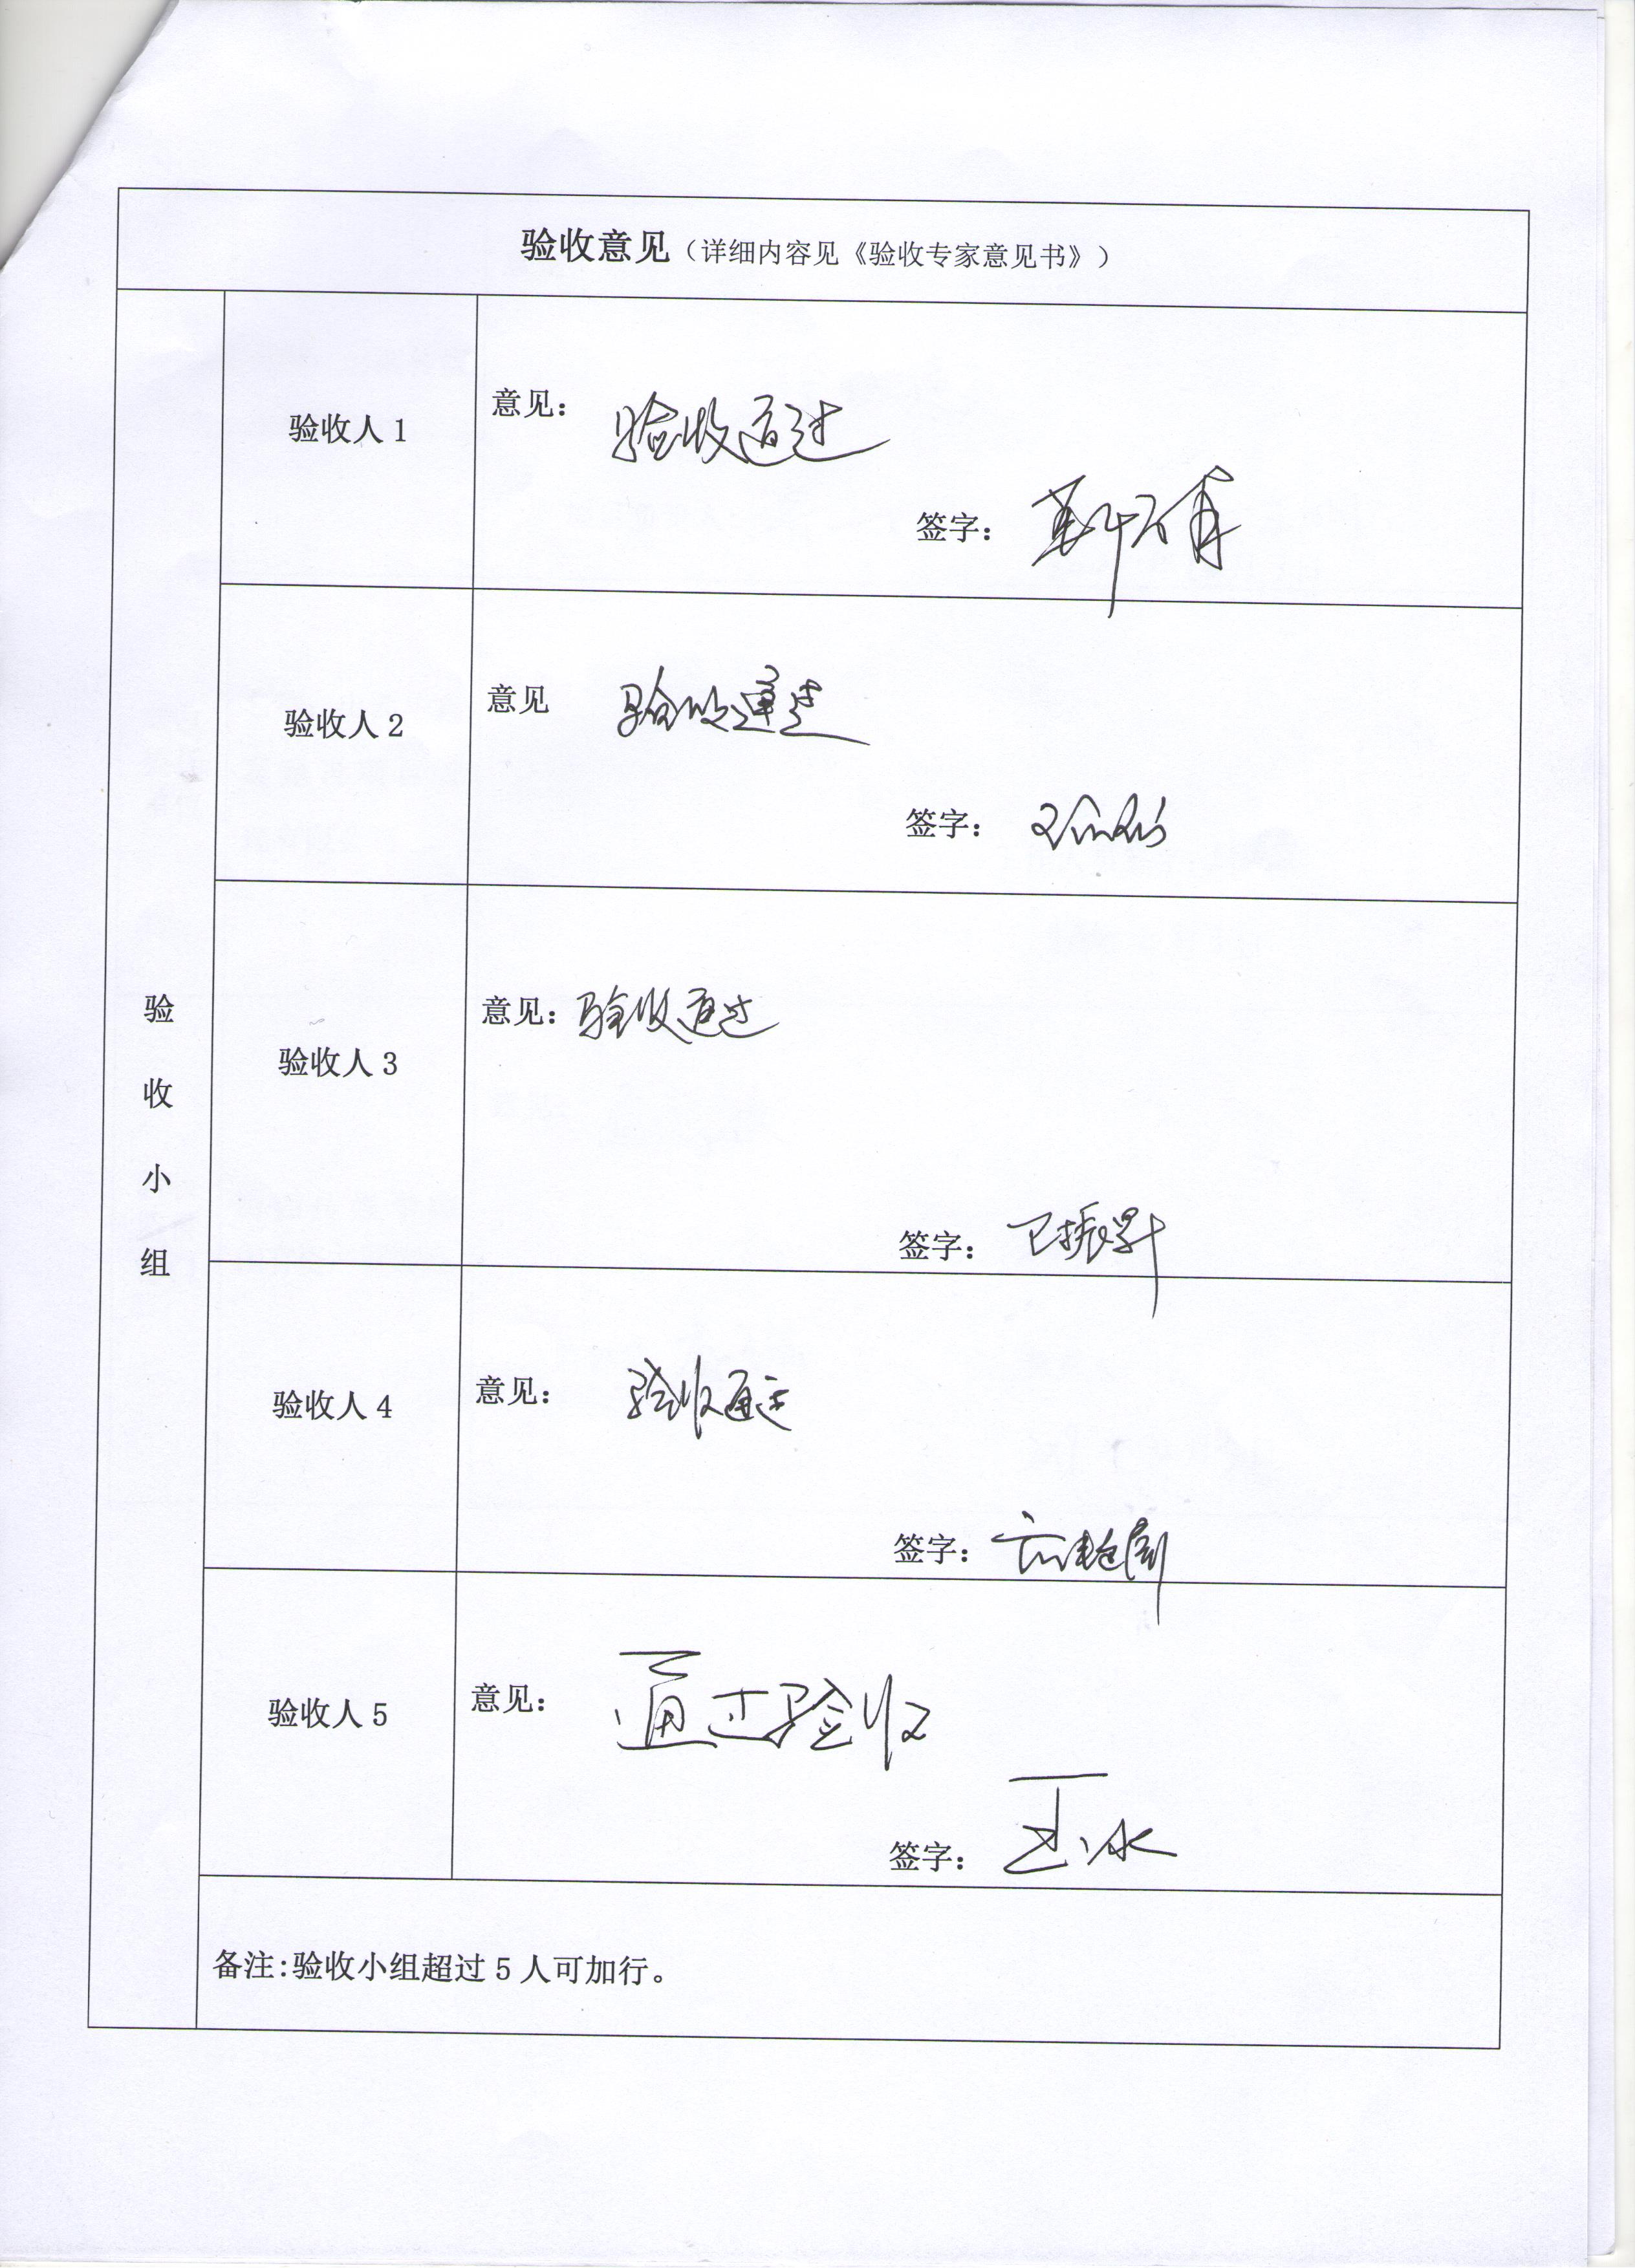 验收意见（详细内容见《验收专家意见书》）
验收小组
验收人1
意见：验收通过
签字：
验收人2
意见 验收通过
签字：
验收人3
意见：验收通过
签字：卫振昇
验收人4
意见：验收通过
签字：
验收人5
意见：通过验收
签字：王冰
备注:验收小组超过5人可加行。